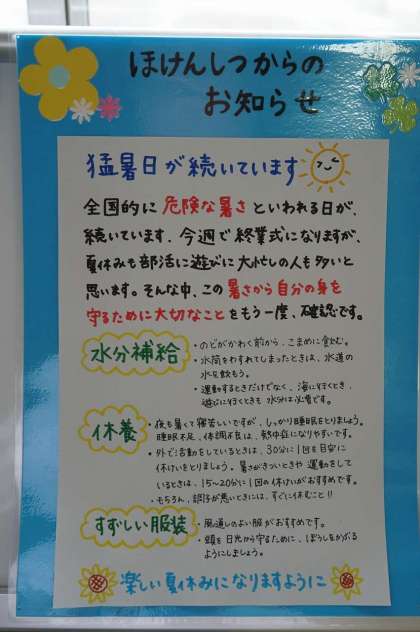 ほけんしつからの
お知らせ
猛暑日が続いています
全国的に危険な暑さといわれる日が、
続いています。今週で終業式になりますが、
夏休みも部活に遊びに大忙しの人も多いと
思います。そんな中、この暑さから自分の身を
守るために大切なことをもう一度、確認です。
水分補給
・のどがかわく前から、こまめに飲む。
・水筒をわすれてしまったときは、水道の
水を飲もう。
・運動するときだけでなく、海に行くとき、
遊びに行くときも水分は必需です。
休養
・夜も暑くて寝苦しいですが、しっかり睡眠をとりましょう。
睡眠不足、体調不良は、熱中症になりやすいです。
・外で活動をしているときは、30分に1回を目安に
休けいをとりましょう。暑さがきついときや運動をして
いるときは、15~20分に1回の休けいがおすすめです。
・もちろん、調子が悪いときには、すぐに休むこと!!
すずしい服装
・風通しのよい服がおすすめです。
・頭を日光から守るために、ぼうしをかぶる
ようにしましょう。
楽しい夏休みになりますように